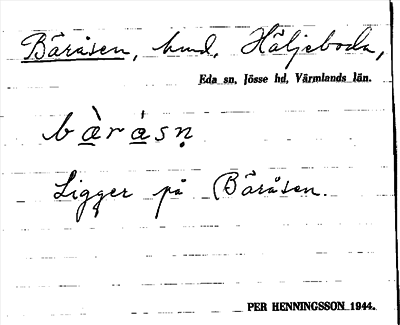 Bäråsen, hmd, Häljeboda,
Eda sn, Jösse hd, Värmlands län.
bàrásṇ
Ligger på Bäråsen.
PER HENNINGSSON 1944.